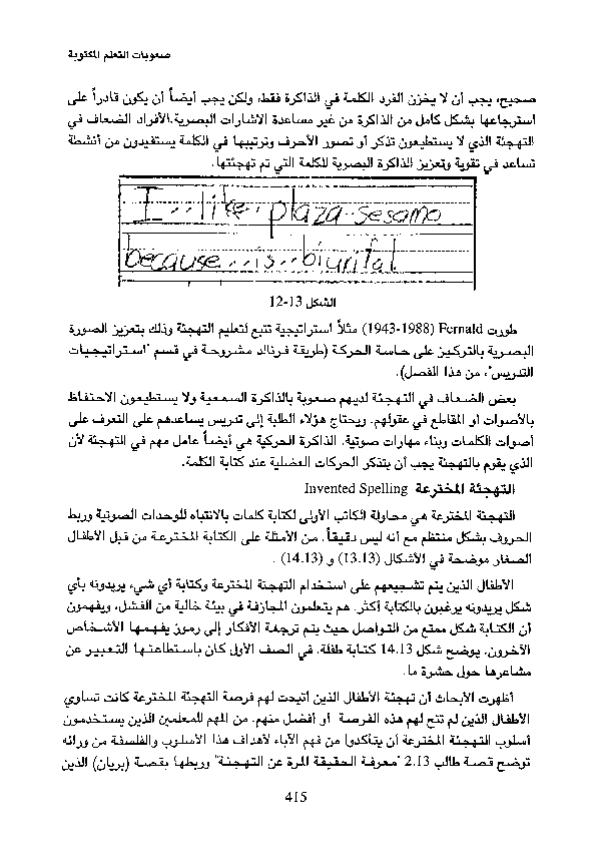 صعوبات التعلم المكتوبة
صحيح، يجب أن لا يخزن الفرد الكلمة في الذاكرة فقط، ولكن يجب أيضاً أن يكون قادراً على
استرجاعها بشكل كامل من الذاكرة من غير مساعدة الاشارات البصرية.الأفراد الضعاف في
التهجئة الذي لا يستطيعون تذكر أو تصور الأحرف وترتيبها في الكلمة يستفيدون من أنشطة
تساعد في تقوية وتعزيز الذاكرة البصرية للكلمة التي تم تهجئتها.
I..like..plaza-sesamo
because...is..biurifal
الشكل 13-12
طورت Fernald (1943-1988) مثلاً استراتيجية تتبع لتعليم التهجئة وذلك بتعزيز الصورة
البصرية بالتركيز على حاسة الحركة (طريقة فرنالد مشروحة في قسم "استراتيجيات
التدريس"، من هذا الفصل).
بعض الضعاف في التهجئة لديهم صعوبة بالذاكرة السمعية ولا يستطيعون الاحتفاظ
بالأصوات او المقاطع في عقولهم. ويحتاج هؤلاء الطلبة إلى تدريس يساعدهم على التعرف على
أصوات الكلمات وبناء مهارات صوتية. الذاكرة الحركية هي أيضاً عامل مهم في التهجئة لأن
الذي يقوم بالتهجئة يجب أن يتذكر الحركات العضلية عند كتابة الكلمة.
التهجئة المخترعة Invented Spelling
التهجئة المخترعة هي محاولة الكاتب الأولى لكتابة كلمات بالانتباه للوحدات الصوتية وربط
الحروف بشكل منتظم مع أنه ليس دقيقاً. من الأمثلة على الكتابة المخترعة من قبل الأطفال
الصغار موضحة في الأشكال (13.13) و (14.13) .
الأطفال الذين يتم تشجيعهم على استخدام التهجئة المخترعة وكتابة أي شيء يريدونه بأي
شكل يريدونه يرغبون بالكتابة أكثر. هم يتعلمون المجازفة في بيئة خالية من الفشل، ويفهمون
أن الكتابة شكل ممتع من التواصل حيث يتم ترجمة الأفكار إلى رموز يفهمها الأشخاص
الآخرون. يوضح شكل 14.13 كتابة طفلة، في الصف الأول كان باستطاعتها التعبير عن
مشاعرها حول حشرة ما.
أظهرت الأبحاث أن تهجئة الأطفال الذين أتيحت لهم فرصة التهجئة المخترعة كانت تساوي
الأطفال الذين لم تتح لهم هذه الفرصة أو أفضل منهم. من المهم للمعلمين الذين يستخدمون
أسلوب التهجئة المخترعة أن يتأكدوا من فهم الآباء لأهداف هذا الأسلوب والفلسفة من ورائه
توضح قصة طالب 2.13 "معرفة الحقيقة المرة عن التهجئة" وربطها بقصة (بريان) الذين
415